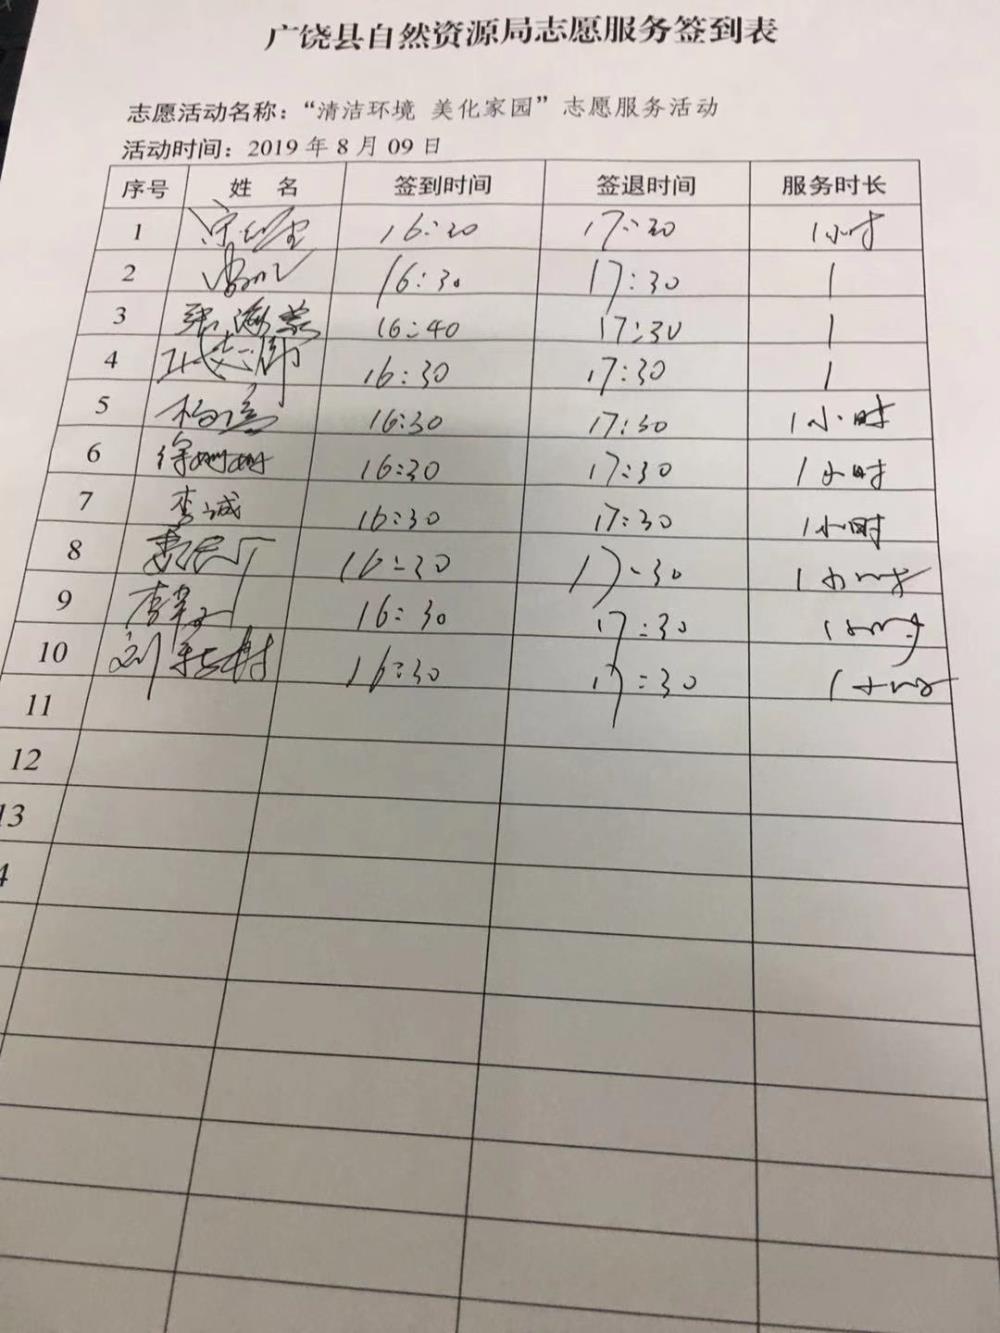 广饶县自然资源局志愿服务签到表
志愿活动名称：“清洁环境 美化家园”志愿服务活动
活动时间：2019 年 8 月 09 日
序号 姓 名 签到时间 签退时间 服务时长
1 16:30 17:30 1小时
2 16:30 17:30 1
3 张海燕 16:40 17:30 1
4 16:30 17:30 1
5 16:30 17:30 1小时
6 徐姗姗 16:30 17:30 1小时
7 李诚 16:30 17:30 1小时
8 16:30 17:30 1小时
9 16:30 17:30 1小时
10 刘 16:30 17:30 1小时
11
12
13
4